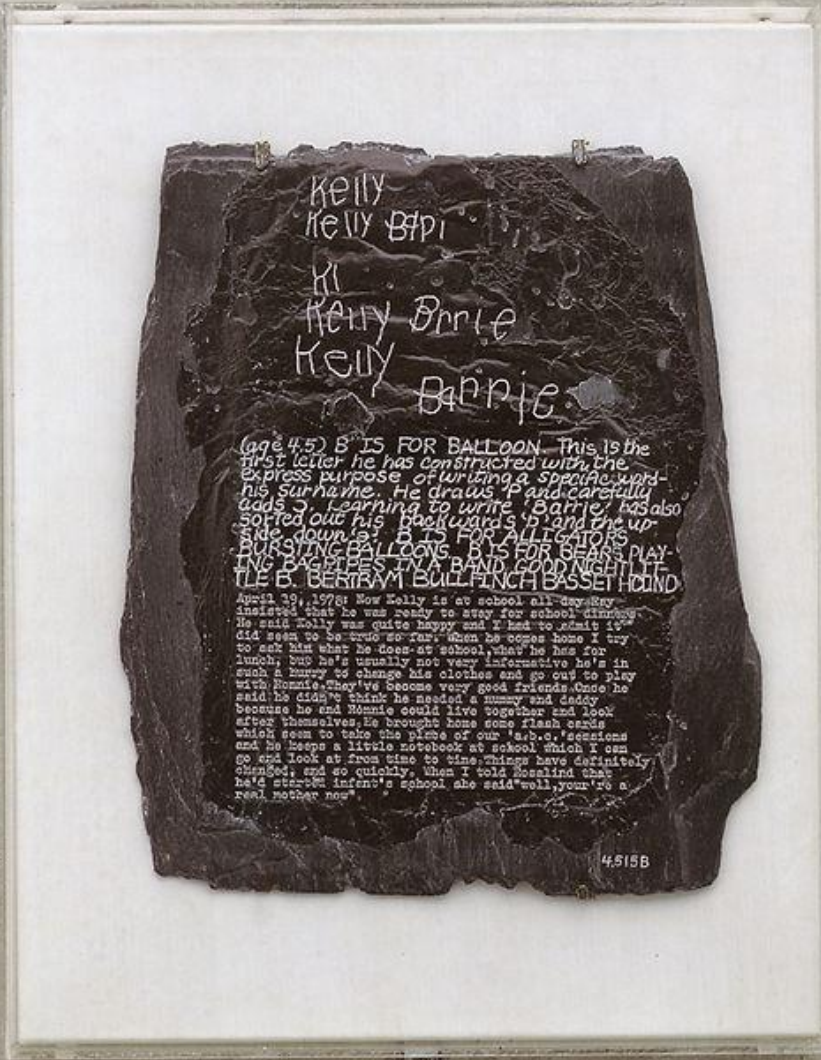 Kelly
Kelly BAPI
KI
Kelly Brrie
Kelly
Barrie
(age 4.5) B IS FOR BALLOON. This is the
first letter he has constructed with the
express purpose of writing a specific word-
his surname. He draws 'P' and carefully
adds 'J'. Learning to write 'Barrie' has also
sorted out his backwards 'b' and the up-
side down 'e'. B IS FOR ALLIGATORS
BURSTING BALLOONS. B IS FOR BEARS PLAY-
ING BAGPIPES IN A BAND. GOOD NIGHT LIT-
TLE B. BERTRAM BULLFINCH BASSET HOUND
April 19, 1978: Now Kelly is at school all day. Ray
insisted that he was ready to stay for school dinners
He said Kelly was quite happy and I had to admit it
did seem to be true so far. When he comes home I try
to ask him what he does at school, what he has for
lunch, but he's usually not very informative he's in
such a hurry to change his clothes and go out to play
with Ronnie. They've become very good friends. Once he
said he didn't think he needed a mummy and daddy
because he and Ronnie could live together and look
after themselves. He brought home some flash cards
which seem to take the place of our 'a.b.c.' sessions
and he keeps a little notebook at school which I can
go and look at from time to time. Things have definitely
changed, and so quickly. When I told Rosalind that
he'd started infant's school she said "well, your're a
real mother now"
4.515B